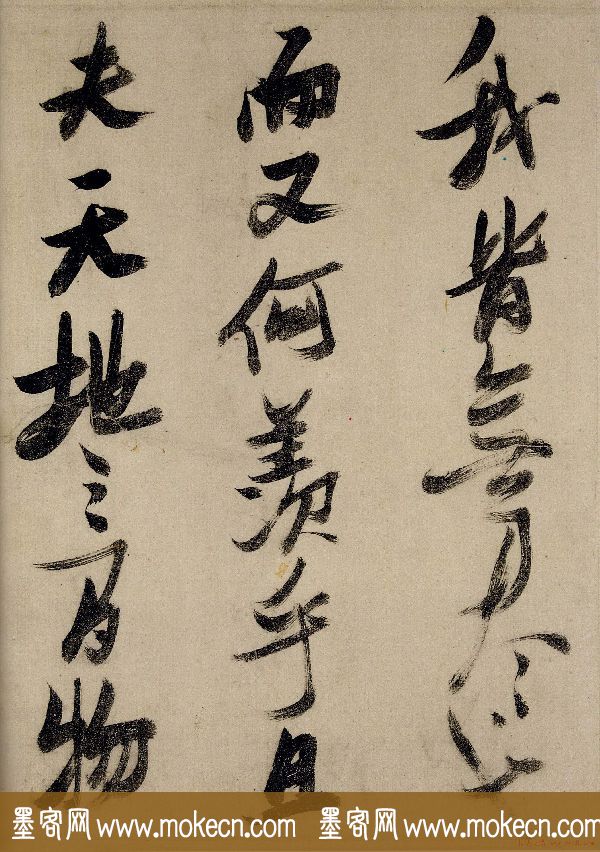 我皆無盡也
而又何羨乎且
夫天地之間物
墨客网 www.mokecn.com 墨客网 www.mokecn.com